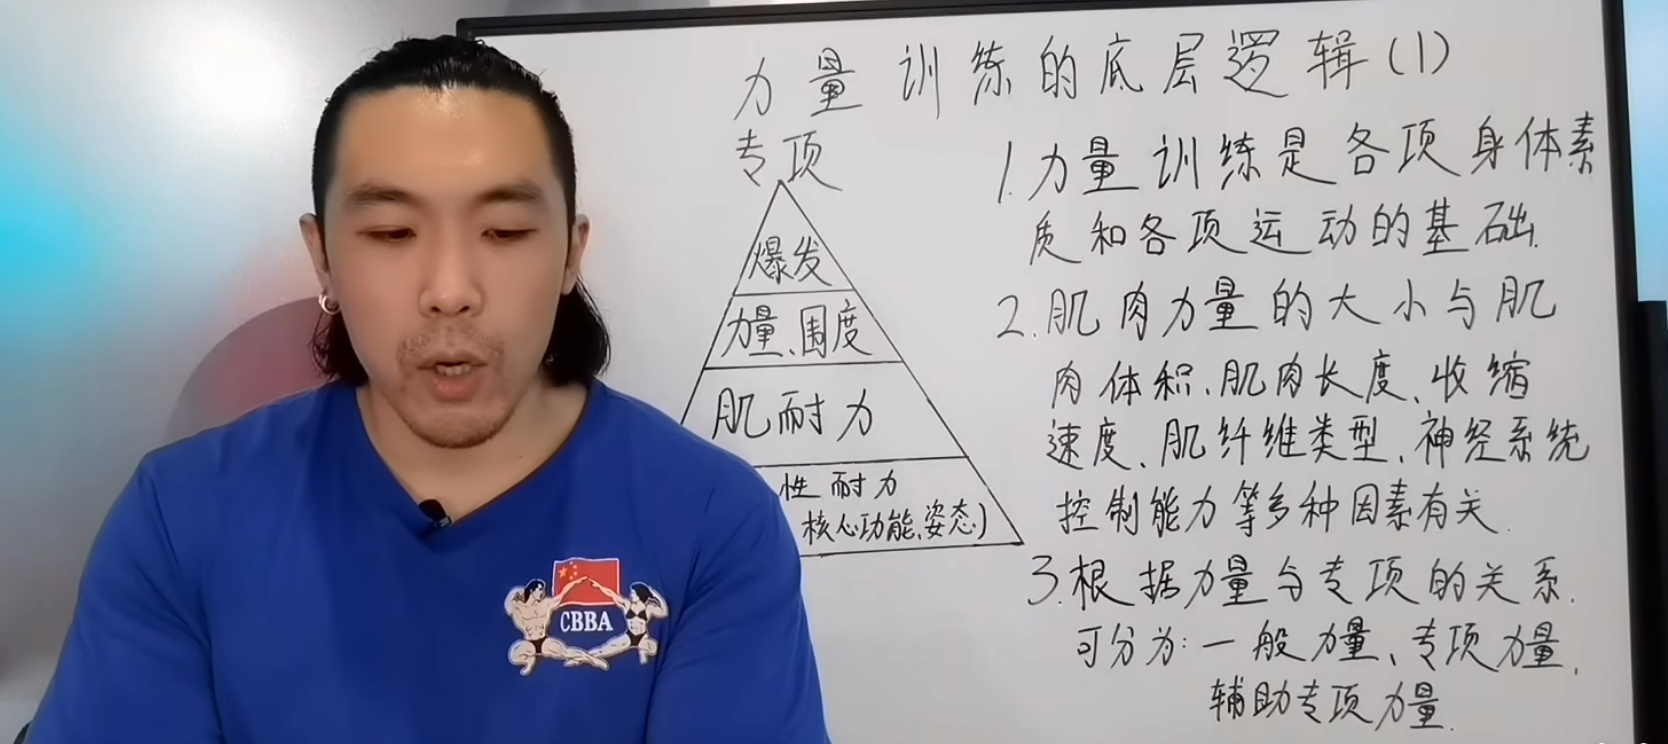 力量训练的底层逻辑(1)
专项
爆发
力量、围度
肌耐力
性耐力
核心功能、姿态)
1.力量训练是各项身体素
质和各项运动的基础.
2.肌肉力量的大小与肌
肉体积、肌肉长度、收缩
速度、肌纤维类型、神经系统
控制能力等多种因素有关.
3.根据力量与专项的关系.
可分为:一般力量、专项力量、
辅助专项力量.
CBBA